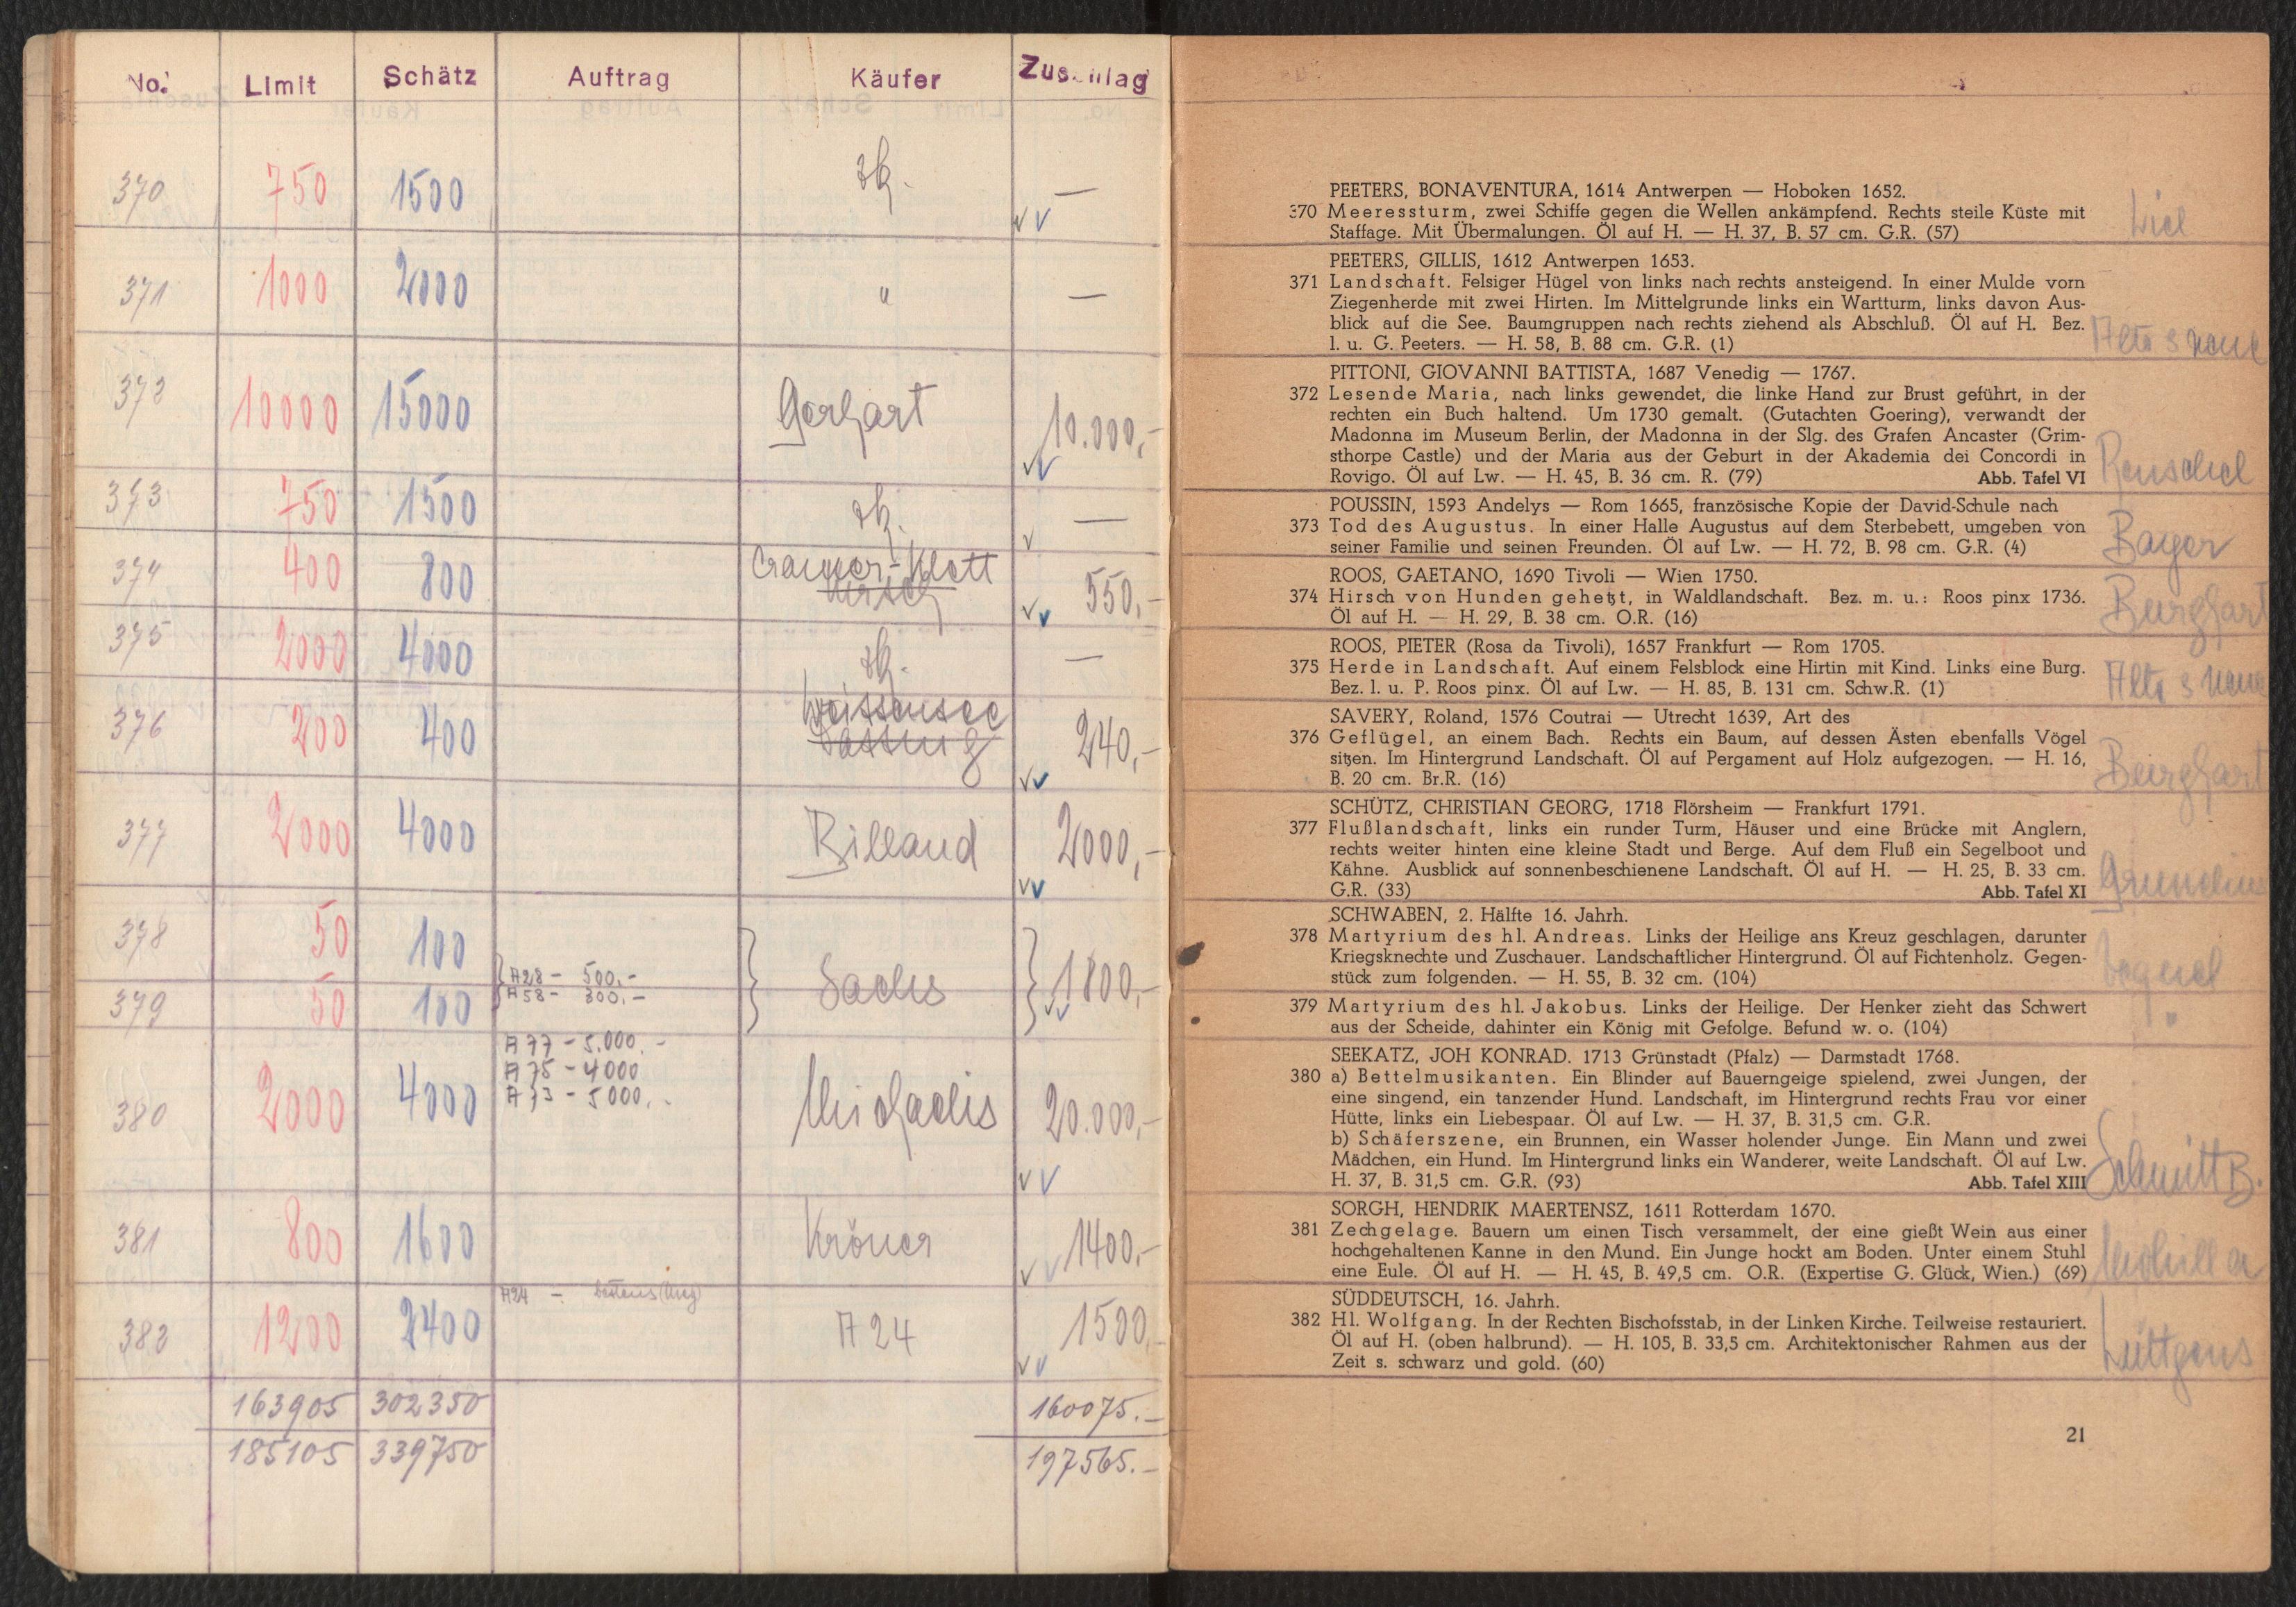 No. Limit Schätz Auftrag Käufer Zuschlag
370 750 1500 zk. —
371 1000 2000 " —
372 10000 15000 Gerhart 10.000,-
373 750 1500 zk. —
374 400 800 Cramer-Klett 550,-
375 2000 4000 zk. —
376 200 400 Weissensee 240,-
377 2000 4000 Billand 2000,-
378 50 100 A28 - 500.-
379 50 100 A58 - 300.- Sachs 1800,-
A77 - 5.000.-
A75 - 4000
A73 - 5000.-
380 2000 4000 Michaelis 20.000,-
381 800 1600 Kröner 1400,-
A24 - bestens
382 1200 2400 A24 1500,-
163905 302350 160075.-
185105 339750 197565.-
PEETERS, BONAVENTURA, 1614 Antwerpen — Hoboken 1652.
370 Meeressturm, zwei Schiffe gegen die Wellen ankämpfend. Rechts steile Küste mit
Staffage. Mit Übermalungen. Öl auf H. — H. 37, B. 57 cm. G.R. (57)
PEETERS, GILLIS, 1612 Antwerpen 1653.
371 Landschaft. Felsiger Hügel von links nach rechts ansteigend. In einer Mulde vorn
Ziegenherde mit zwei Hirten. Im Mittelgrunde links ein Wartturm, links davon Aus-
blick auf die See. Baumgruppen nach rechts ziehend als Abschluß. Öl auf H. Bez.
l. u. G. Peeters. — H. 58, B. 88 cm. G.R. (1)
PITTONI, GIOVANNI BATTISTA, 1687 Venedig — 1767.
372 Lesende Maria, nach links gewendet, die linke Hand zur Brust geführt, in der
rechten ein Buch haltend. Um 1730 gemalt. (Gutachten Goering), verwandt der
Madonna im Museum Berlin, der Madonna in der Slg. des Grafen Ancaster (Grim-
sthorpe Castle) und der Maria aus der Geburt in der Akademia dei Concordi in
Rovigo. Öl auf Lw. — H. 45, B. 36 cm. R. (79) Abb. Tafel VI
Renschel
POUSSIN, 1593 Andelys — Rom 1665, französische Kopie der David-Schule nach
373 Tod des Augustus. In einer Halle Augustus auf dem Sterbebett, umgeben von
seiner Familie und seinen Freunden. Öl auf Lw. — H. 72, B. 98 cm. G.R. (4)
Bayer
ROOS, GAETANO, 1690 Tivoli — Wien 1750.
374 Hirsch von Hunden gehetzt, in Waldlandschaft. Bez. m. u.: Roos pinx 1736.
Öl auf H. — H. 29, B. 38 cm. O.R. (16)
Burghart
ROOS, PIETER (Rosa da Tivoli), 1657 Frankfurt — Rom 1705.
375 Herde in Landschaft. Auf einem Felsblock eine Hirtin mit Kind. Links eine Burg.
Bez. l. u. P. Roos pinx. Öl auf Lw. — H. 85, B. 131 cm. Schw.R. (1)
SAVERY, Roland, 1576 Coutrai — Utrecht 1639, Art des
376 Geflügel, an einem Bach. Rechts ein Baum, auf dessen Ästen ebenfalls Vögel
sitzen. Im Hintergrund Landschaft. Öl auf Pergament auf Holz aufgezogen. — H. 16,
B. 20 cm. Br.R. (16)
Burghart
SCHÜTZ, CHRISTIAN GEORG, 1718 Flörsheim — Frankfurt 1791.
377 Flußlandschaft, links ein runder Turm, Häuser und eine Brücke mit Anglern,
rechts weiter hinten eine kleine Stadt und Berge. Auf dem Fluß ein Segelboot und
Kähne. Ausblick auf sonnenbeschienene Landschaft. Öl auf H. — H. 25, B. 33 cm.
G.R. (33) Abb. Tafel XI
Grunelius
SCHWABEN, 2. Hälfte 16. Jahrh.
378 Martyrium des hl. Andreas. Links der Heilige ans Kreuz geschlagen, darunter
Kriegsknechte und Zuschauer. Landschaftlicher Hintergrund. Öl auf Fichtenholz. Gegen-
stück zum folgenden. — H. 55, B. 32 cm. (104)
379 Martyrium des hl. Jakobus. Links der Heilige. Der Henker zieht das Schwert
aus der Scheide, dahinter ein König mit Gefolge. Befund w. o. (104)
"
SEEKATZ, JOH KONRAD. 1713 Grünstadt (Pfalz) — Darmstadt 1768.
380 a) Bettelmusikanten. Ein Blinder auf Bauerngeige spielend, zwei Jungen, der
eine singend, ein tanzender Hund. Landschaft, im Hintergrund rechts Frau vor einer
Hütte, links ein Liebespaar. Öl auf Lw. — H. 37, B. 31,5 cm. G.R.
b) Schäferszene, ein Brunnen, ein Wasser holender Junge. Ein Mann und zwei
Mädchen, ein Hund. Im Hintergrund links ein Wanderer, weite Landschaft. Öl auf Lw.
H. 37, B. 31,5 cm. G.R. (93) Abb. Tafel XIII
Schmitt B.
SORGH, HENDRIK MAERTENSZ, 1611 Rotterdam 1670.
381 Zechgelage. Bauern um einen Tisch versammelt, der eine gießt Wein aus einer
hochgehaltenen Kanne in den Mund. Ein Junge hockt am Boden. Unter einem Stuhl
eine Eule. Öl auf H. — H. 45, B. 49,5 cm. O.R. (Expertise G. Glück, Wien.) (69)
SÜDDEUTSCH, 16. Jahrh.
382 Hl. Wolfgang. In der Rechten Bischofsstab, in der Linken Kirche. Teilweise restauriert.
Öl auf H. (oben halbrund). — H. 105, B. 33,5 cm. Architektonischer Rahmen aus der
Zeit s. schwarz und gold. (60)
Lüttgens
21